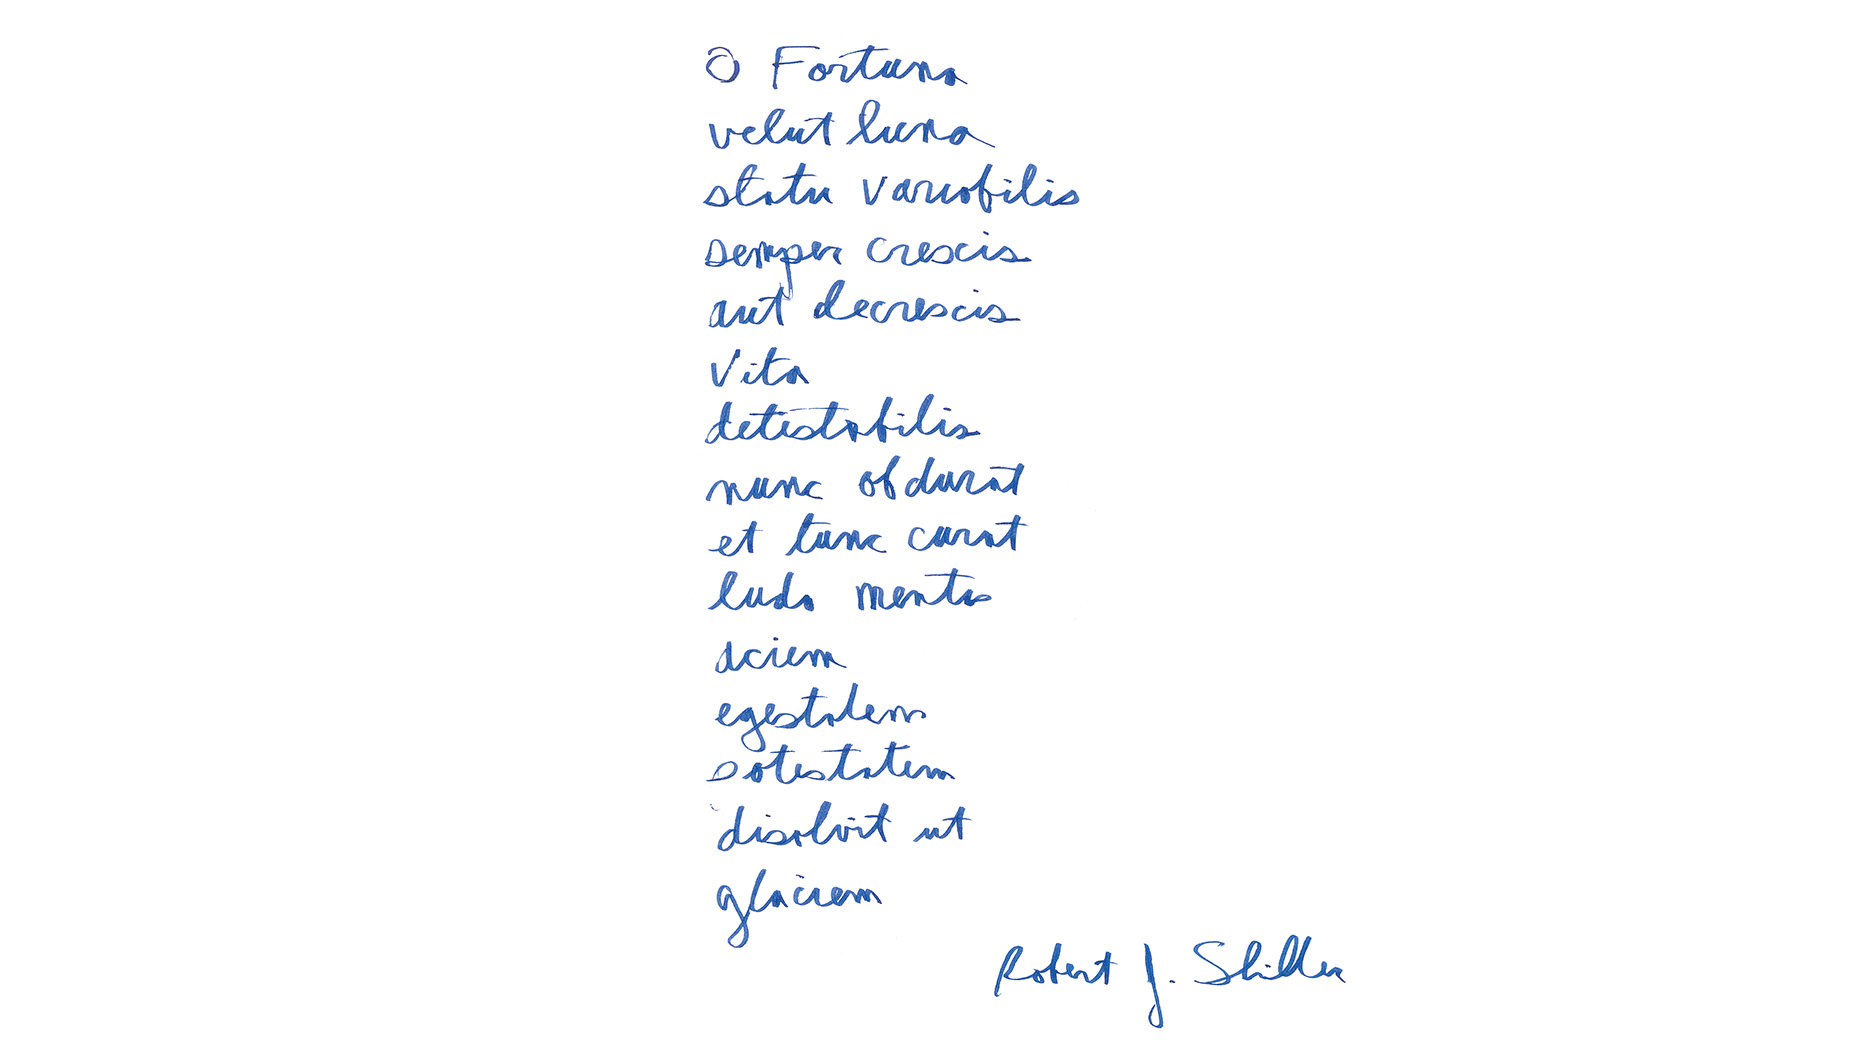 O Fortuna
velut luna
statu variabilis
semper crescis
aut decrescis
Vita
detestabilis
nunc obdurat
et tunc curat
ludo mentis
aciem
egestatem
potestatem
disolvit ut
glaciem
Robert J. Shiller